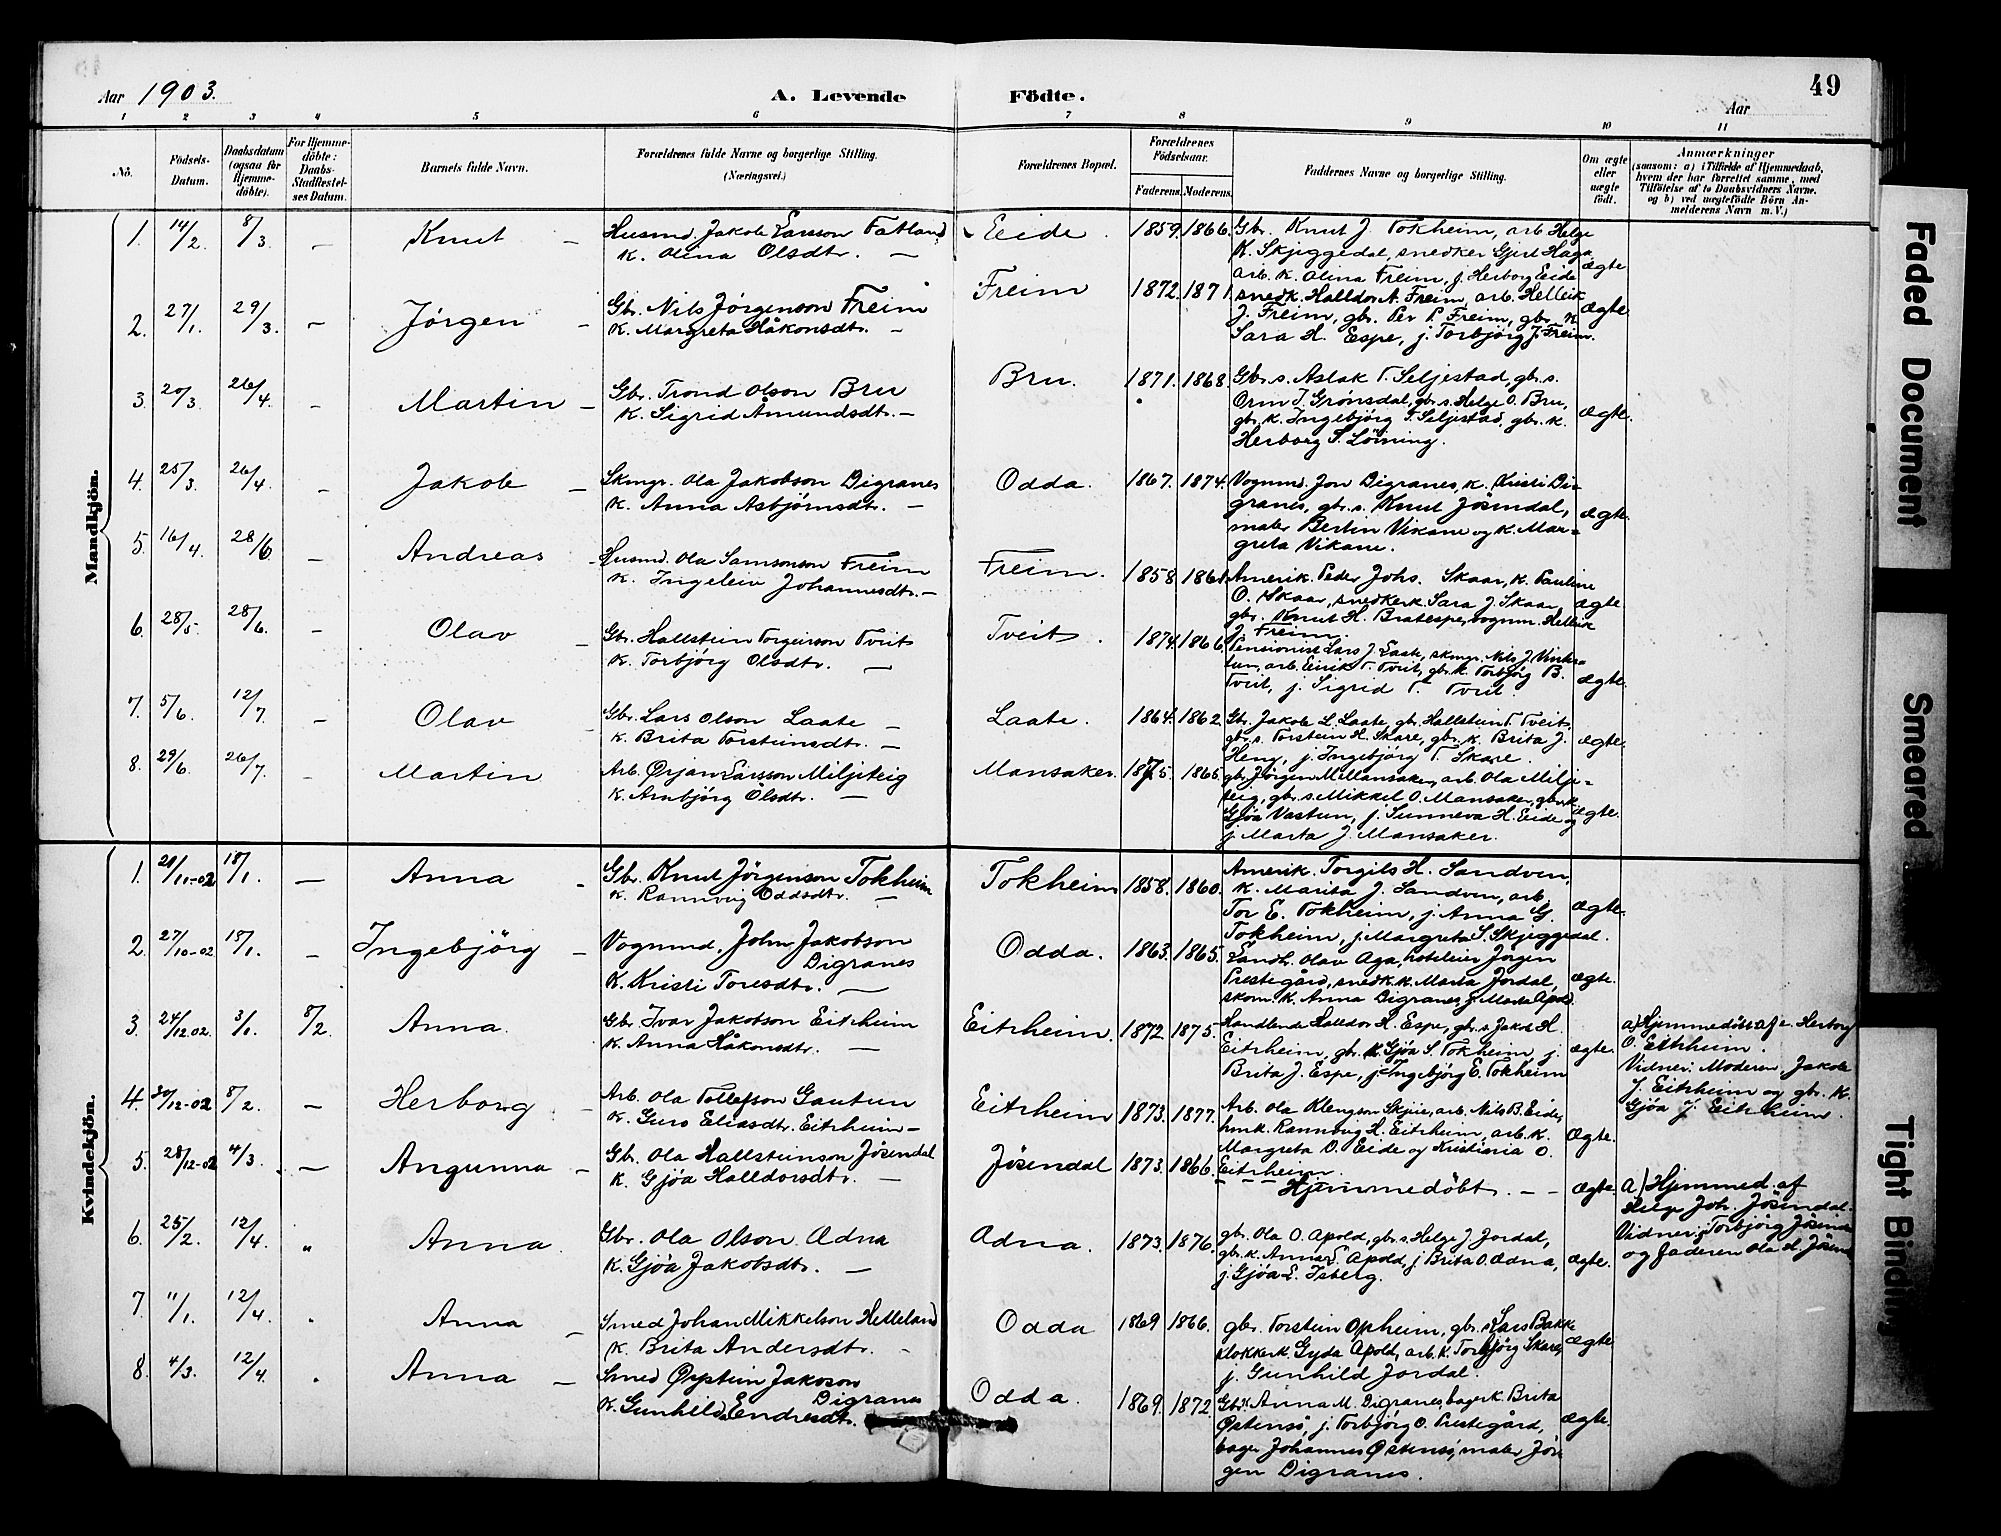 Aar 1903. A. Levende Födte. Aar 49
1 2 3 4 5 6 7 8 9 10 11
No. Födsels-Datum. Daabsdatum (ogsaa for Hjemmedöbte). For Hjemmedöbte: Daabs-Stadfestelses Datum. Barnets fulde Navn. Forældrenes fulde Navne og borgerlige Stilling. (Næringsvei.) Forældrenes Bopæl. Forældrenes Födselsaar. Faderens. Moderens. Faddernes Navne og borgerlige Stilling. Om ægte eller uægte födt. Anmærkninger (saasom: a) i Tilfælde af Hjemmedaab, hvem der har forrettet samme, med Tilföielse af to Daabsvidners Navne, og b) ved uægtefödte Börn Anmelderens Navn m. V.)
Mandkjön.
1. 14/2. 8/3. – Knut – Husmd. Jakob Larsson Fatland
K. Olina Olsdtr. –
Eide. 1859. 1866. Gbr. Knut J. Tokheim, arb. Helge
K. Skjeggedal, snedker Gjert Haga,
arb. k. Olina Freim, j. Herborg Eide
ægte
2. 27/1. 29/3. – Jörgen – Gbr. Nils Jörgenson Freim
K. Margreta Håkonsdtr. –
Freim 1872. 1871. snedk. Halldor A. Freim, arb. Helleik
J. Freim, gbr. Per P. Freim, gbr. k.
Sara H. Espe, j. Torbjörg J. Freim.
ægte
3. 20/3. 26/4. – Martin – Gbr. Trond Olson Bru
K. Sigrid Åmundsdtr. –
Bru. 1871. 1868. Gbr. s. Aslak T. Seljestad, gbr. s.
Orm J. Grönsdal, gbr. s. Helge O. Bru,
gbr. k. Ingebjörg T. Seljestad, gbr. k.
Herborg S. Löining.
ægte.
4. 25/3. 26/4. – Jakob – Skmgr. Ola Jakobson Digranes
K. Anna Asbjörnsdtr. –
Odda. 1867. 1874. Vognmd. Jon Digranes, k. Kristi Di-
granes, gbr. s. Knut Jösendal,
maler Bertin Vikane og k. Mar-
greta Vikane.
ægte.
5. 16/4. 28/6. – Andreas – Husmd. Ola Samsonson Freim
K. Ingeleiv Johannesdtr. –
Freim. 1858 Amerik. Peder Johs. Skaar, k. Pauline
O. Skaar, snedker k. Sara J. Skaar,
gbr. Knut H. Bratespe, vognm. Helleik
J. Freim.
ægte.
6. 28/5. 28/6. – Olav – Gbr. Hallstein Torgeirson Tveit
K. Torbjörg Olsdtr. –
Tveit. 1874. 1866. Pensionist Lars J. Laate, skmgr. Nils J.
arb. Eirik T. Tveit, gbr. k. Torbjörg B.
Tveit, j. Sigrid T. Tveit.
ægte.
7. 5/6. 12/7. – Olav – Gbr. Lars Olson Laate –
K. Brita Torsteinsdtr. –
Laate. 1864. 1862. Gbr. Jakob L. Laate, gbr. Hallstein T. Tveit,
gbr. s. Torstein H. Skare, gbr. k. Brita J.
Heng, j. Ingebjörg T. Skare.
ægte.
8. 29/6. 26/7. – Martin Arb. Ørjan Larsson Miljeteig
K. Arnbjörg Olsdtr. –
Mansaker. 1875. 1865. gbr. Jörgen M. Mansaker, arb. Ola Milje-
teig, gbr. s. Mikkel O. Mansaker, gbr. k.
Gjöa Vastun, j. Sunneva H. Eide og
j. Marta J. Mansaker.
ægte.
Kvindekjön.
1. /11-02 18/1. – Anna – Gbr. Knut Jörgenson Tokheim
K. Rannveig Oddsdtr. –
Tokheim 1858. 1860. Amerik. Torgils H. Sandven,
K. Marita J. Sandven, arb.
Tor E. Tokheim, j. Anna G.
Tokheim, j. Margreta S. Skjeggedal.
ægte.
2. 27/10-02 18/1. – Ingebjörg – Vognmd. John Jakobson
Digranes
K. Kristi Toresdtr. –
Odda. 1863. 1865. Landh. Olav Aga, hoteleier Jörgen
Prestegård, snedk. k. Marta Jordal,
skom. k. Anna Digranes, j. Marta Apold.
ægte.
3. 24/12.02. 3/1. 8/2. Anna. Gbr. Ivar Jakobson Eitrheim
K. Anna Håkonsdtr. –
Eitrheim. 1872 1875. Handlende Halldor H. Espe, gbr. s. Jakob H.
Eitrheim, gbr. k. Gjöa S. Tokheim, j.
Brita J. Espe, j. Ingebjörg E. Tokheim
ægte. a) Hjemmedöbt af e. Herborg
O. Eitrheim.
Vidner: Moderen, Jakob
J. Eitrheim og gbr. k.
Gjöa J. Eitrheim.
4. 30/12-02 8/2. – Herborg – Arb. Ola Tollefson Gautun
K. Guro Eliasdtr. Eitrheim –
Eitrheim 1873. 1877. Arb. Ola Klengson Skjiie, arb. Nils B. Eide,
hmk. Rannveig H. Eitrheim, arb. k.
Margreta O. Eide og Kristiana O.
Eitrheim.
ægte.
5. 28/12-02 4/3. – Angunna – Gbr. Ola Hallsteinson Jösendal
K. Gjöa Halldorsdtr. –
Jösendal 1873. 1866. Hjemmedöbt. – – ægte. a) Hjemmed. af
Helge Joh. Jösendal.
Vidner: Torbjörg Jösendal
og faderen Ola H. Jösend.
6. 25/2. 12/4. " Anna. Gbr. Ola Olson Adna
K. Gjöa Jakobsdtr. –
Adna. 1873. 1876. gbr. Ola O. Apold, gbr. s. Helge J. Jordal,
gbr. k. Anna L. Apold, j. Brita O. Adna,
j. Gjöa L. Isberg.
ægte.
7. 11/1. 12/4. " Anna – Smed Johan Mikkelson Helleland
K. Brita Andersdtr.
Odda 1869 1866. gbr. Torstein Opheim, gbr. s. Lars Bakke
klokker k. Gyda Apold, arb. k. Torbjörg Skare,
j. Gunhild Jordal.
ægte
8. 4/3. 12/4. " Anna – Smed Øystein Jakobson
Digranes
K. Gunhild Endresdtr.
Odda. 1869. 1872 Gbr. k. Anna M. Digranes, bager k. Brita
Östensö, j. Torbjörg O. Prestegård,
bager Johannes Östensö, maler Jör-
gen Digranes.
ægte.
Faded Document
Smeared
Tight Binding